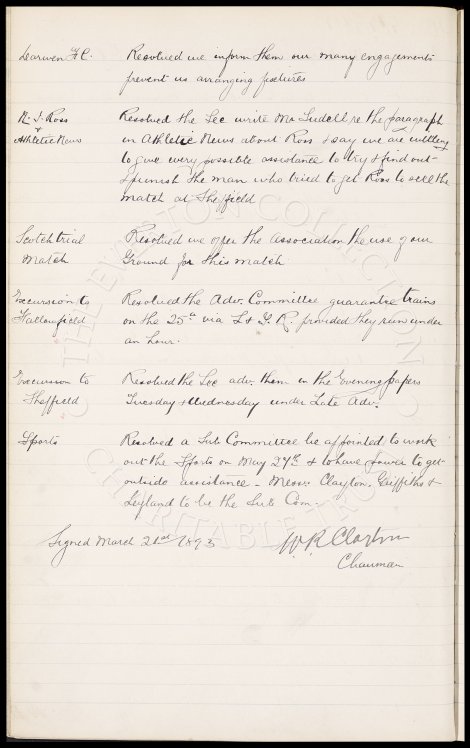 Darwen F.C. Resolved we inform them our many engagements
prevent us arranging fixtures
N. J. Ross Resolved the Sec write Mr Sudell re the paragraph
& Athletic News in Athletic News about Ross & say we are willing
to give every possible assistance to try & find out
& punish the man who tried to get Ross to sell the
match at Sheffield
Scotch trial Resolved we offer the Association the use of our
Match Ground for this match
Excursion to Resolved the Adv. Committee guarantee trains
Fallowfield on the 25th via L & Y. R. provided they run under
an hour.
Excursion to Resolved the Sec adv. them in the Evening papers
Sheffield Tuesday & Wednesday under Late Adv.
Sports Resolved a Sub Committee be appointed to work
out the Sports on May 27th & to have power to get
outside assistance - Messrs Clayton, Griffiths &
Leyland to be the Sub Com.
Signed March 21st 1893 W R Clayton
Chairman
THE EVERTON COLLECTION
CHARITABLE TRUST